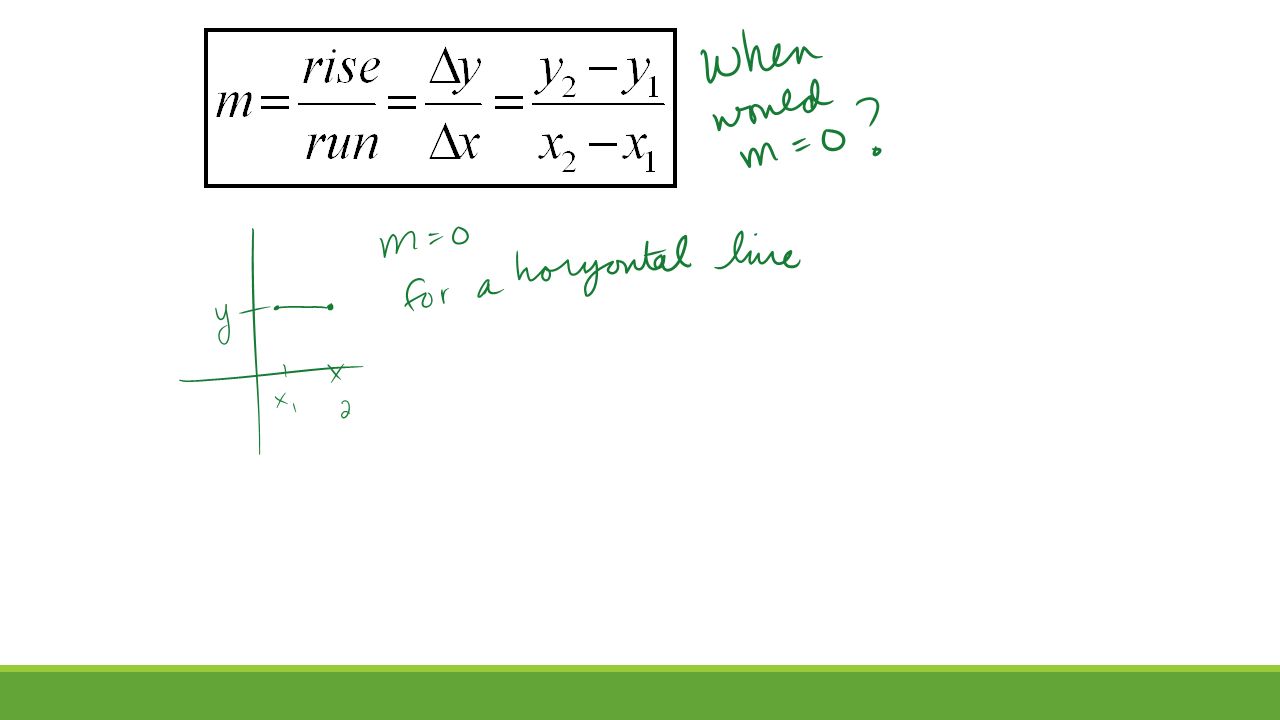 m = rise/run = Δy/Δx = y₂ − y₁/x₂ − x₁
When
would
m = 0 ?
m = 0
for a horizontal line
y
x₁ x
2